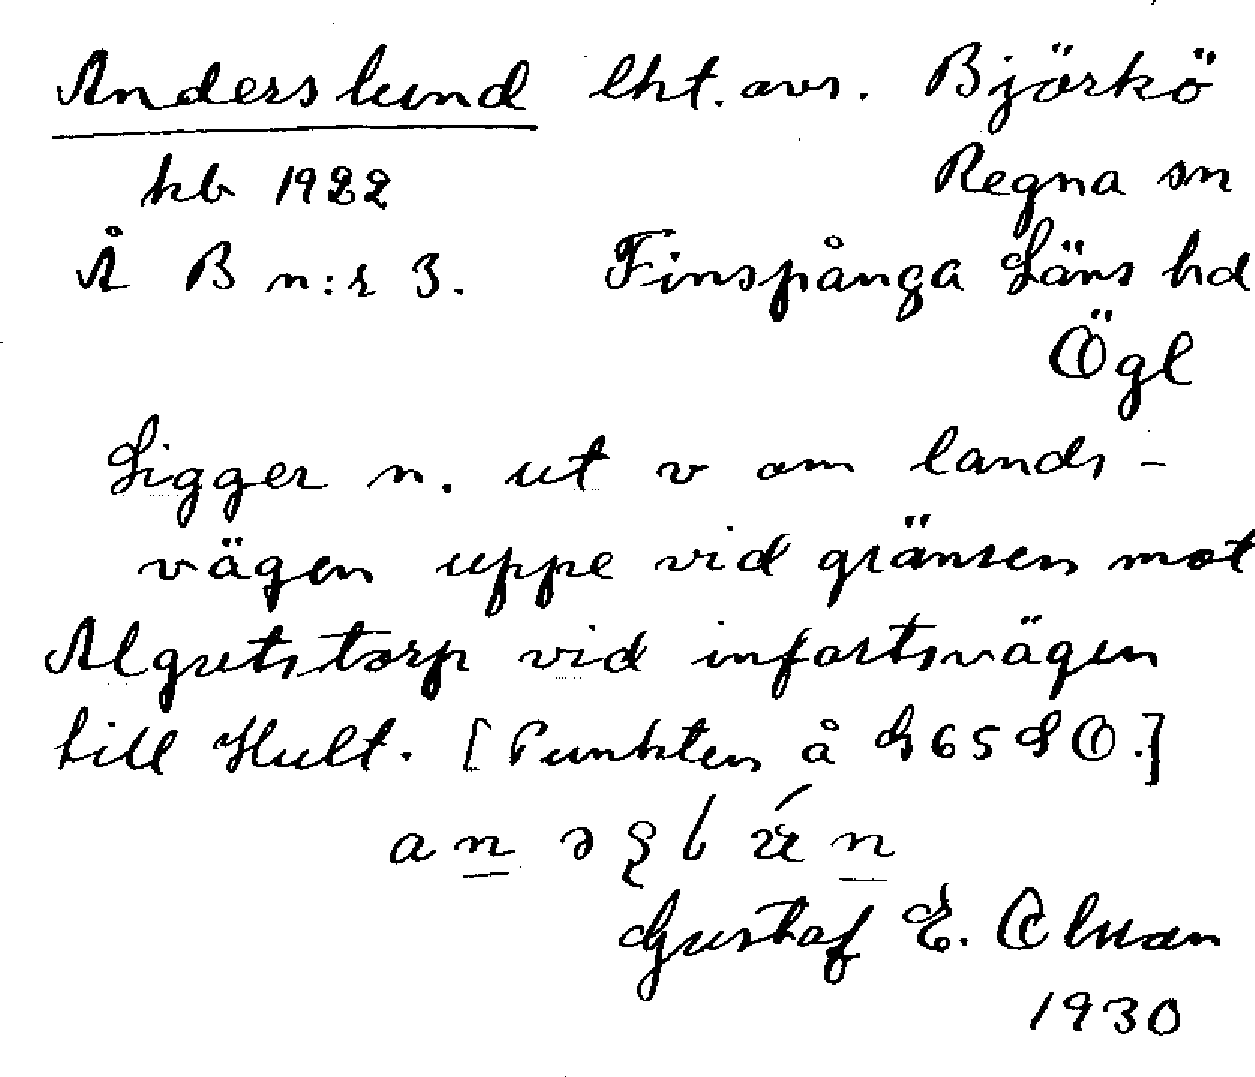 Anderslund lht. avs. Björkö
kb 1922 Regna sn
Å B n:r 3. Finspånga Läns hd
Ögl
Ligger n. ut v om lands-
vägen uppe vid gränsen mot
Algutstorp vid infartsvägen
till Hult. [Punkten å G65SO.]
Gustaf E. Olman
1930